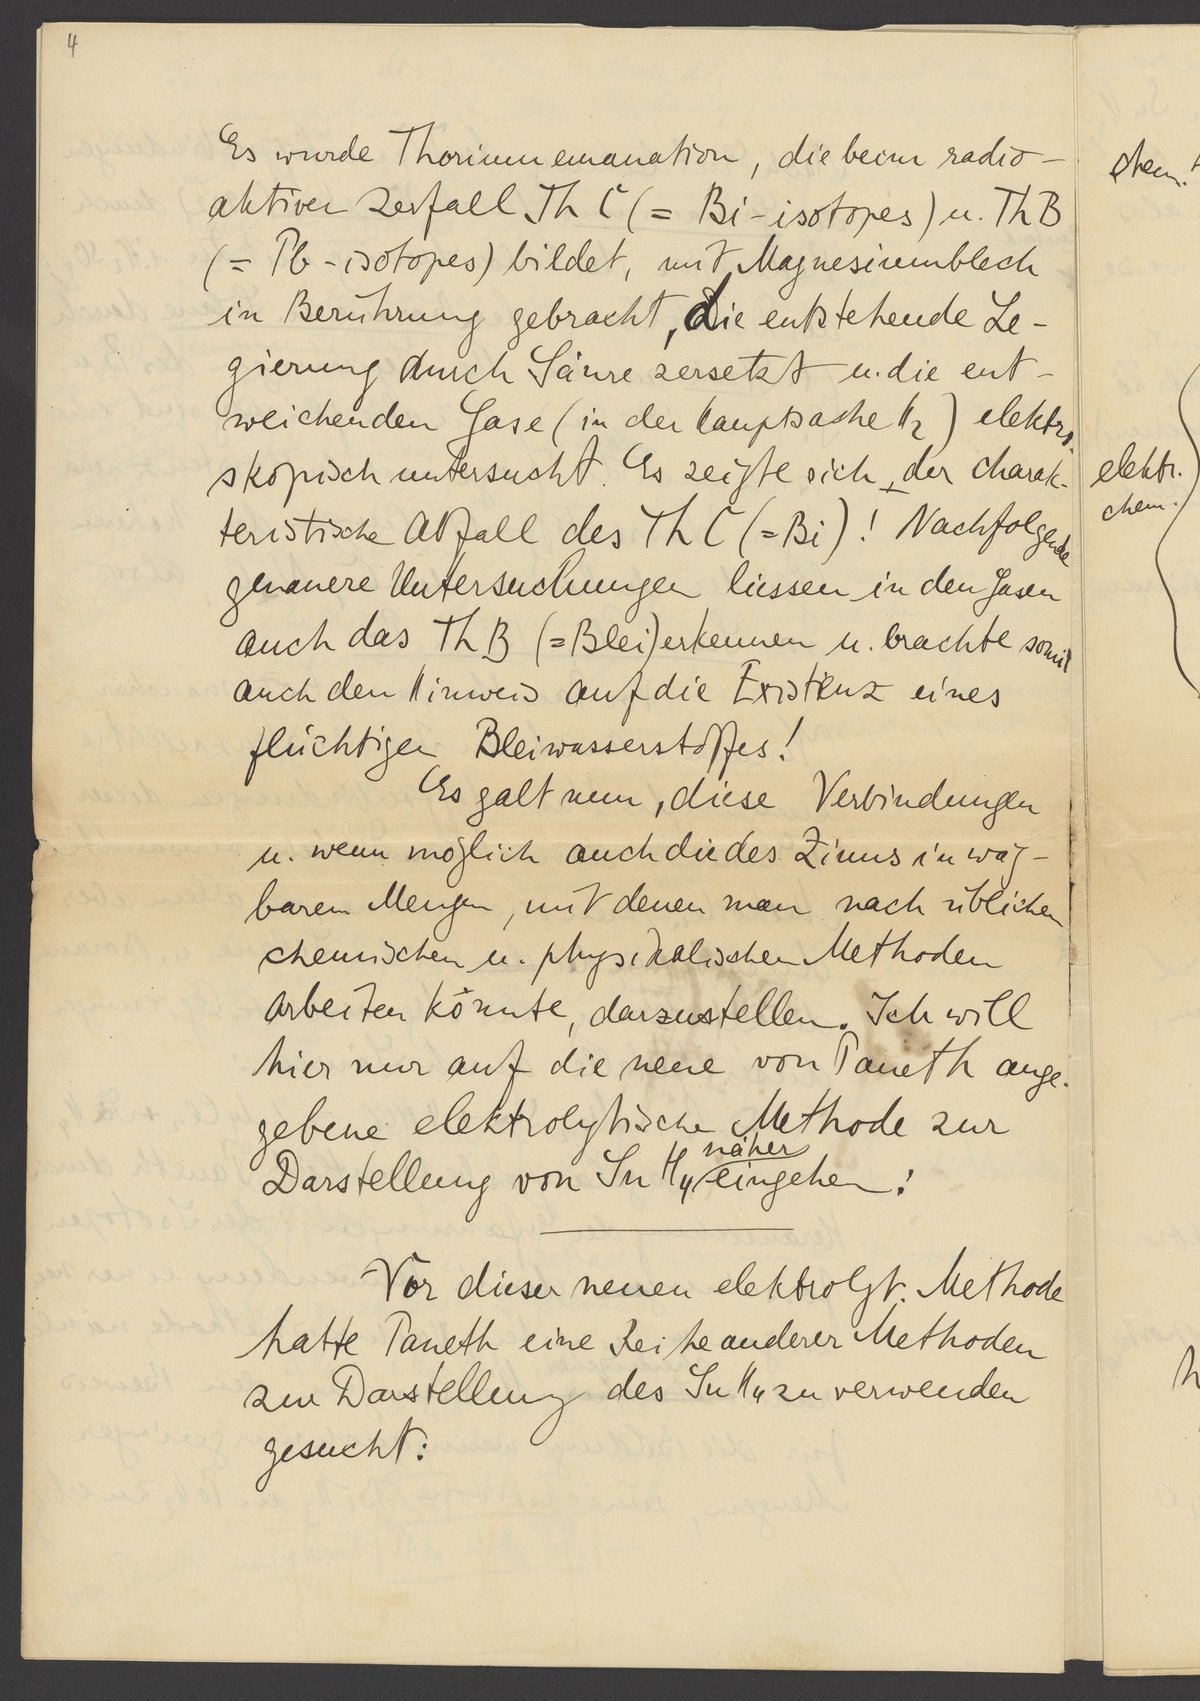 4
Es wurde Thoriumemanation, die beim radio-
aktiven Zerfall Th C (= Bi-isotopes) u. Th B
(= Pb-isotopes) bildet, mit Magnesiumblech
in Berührung gebracht, die entstehende Le-
gierung durch Säure zersetzt u. die ent-
weichenden Gase (in der Hauptsache H2) elektro-
skopisch untersucht. Es zeigte sich der charak-
teristische Abfall des Th C (=Bi)! Nachfolgende
genauere Untersuchungen liessen in den Gasen
auch das Th B (=Blei) erkennen u. brachte somit
auch den Hinweis auf die Existenz eines
flüchtigen Bleiwasserstoffes!
Es galt nun, diese Verbindungen
u. wenn möglich auch die des Zinns in wäg-
baren Mengen, mit denen man nach üblichen
chemischen u. physikalischen Methoden
arbeiten könnte, darzustellen. Ich will
hier nur auf die neue von Paneth ange-
gebene elektrolytische Methode zur
Darstellung von SnH4 näher eingehen:
Vor dieser neuen elektrolyt. Methode
hatte Paneth eine Reihe anderer Methoden
zur Darstellung des SnH4 zu verwenden
gesucht:
chem.
elektr.
chem.